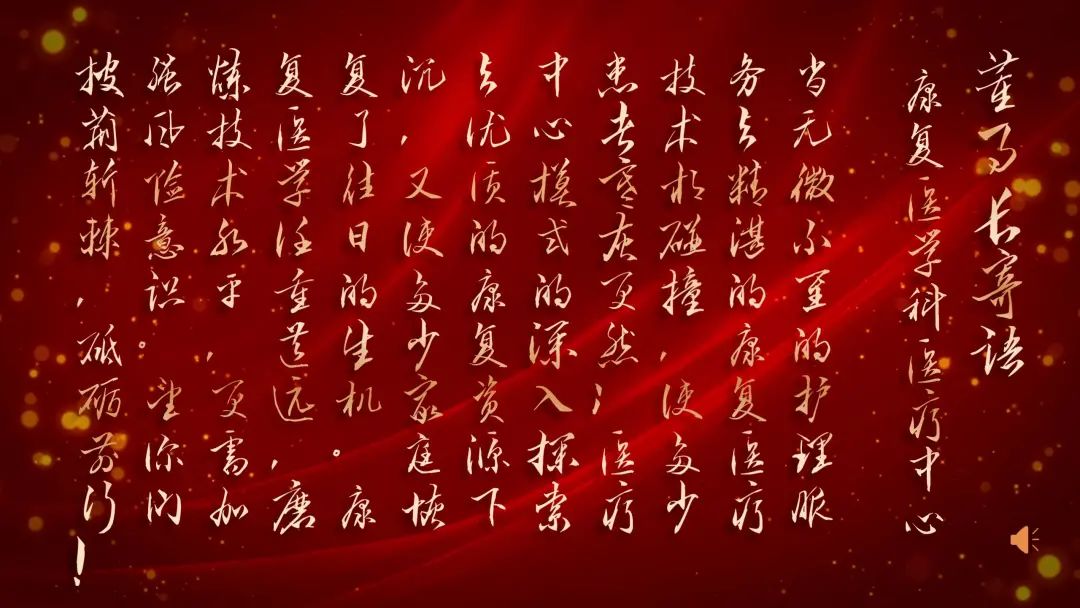 董事长寄语
康复医学科医疗中心
当无微不至的护理服
务与精湛的康复医疗
技术相碰撞，使多少
患者寒灰更然；医疗
中心模式的深入探索
与优质的康复资源下
沉，又使多少家庭恢
复了往日的生机。康
复医学任重道远，磨
炼技术水平，更需加
强风险意识。望你们
披荆斩棘，砥砺前行！